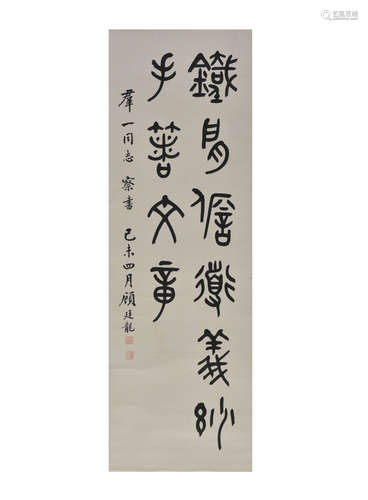 鐵肩儋道義妙
手著文章
羣一同志 察書 己未四月顧廷龍